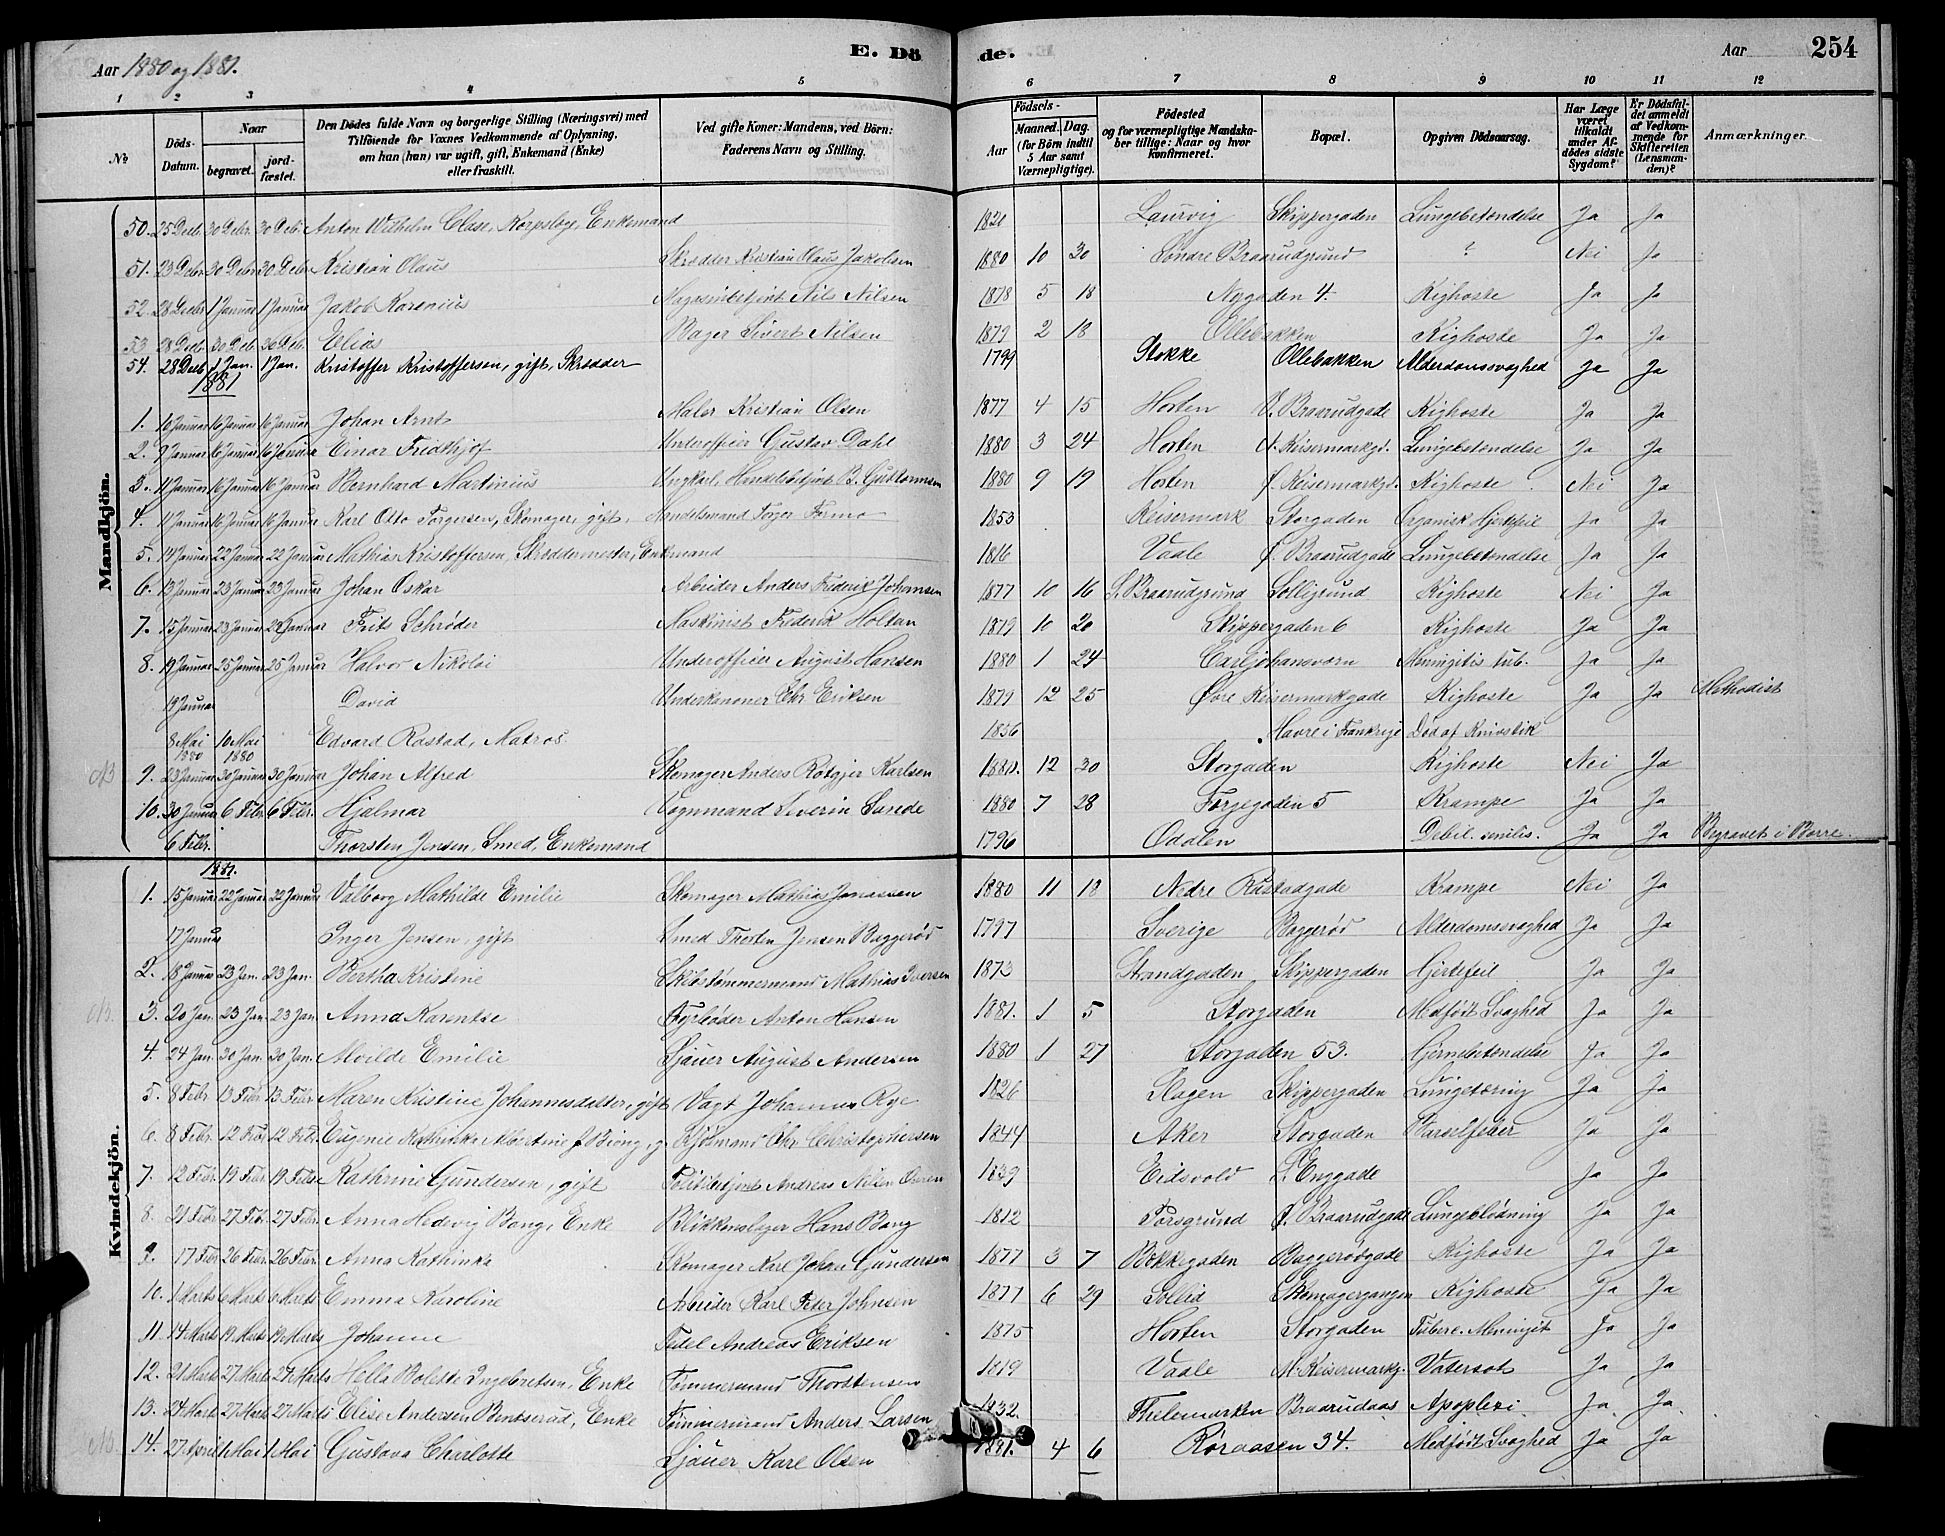 Aar 1880 og 1881. E. Dö de. Aar 254
1 2 3 4 5 6 7 8 9 10 11 12
No Döds-Datum. Naar begravet. jord-fæstet. Den Dödes fulde Navn og borgerlige Stilling (Næringsvei) med Tilföiende for Voxnes Vedkommende af Oplysning, om han (hun) var ugift, gift, Enkemand (Enke) eller fraskilt. Ved gifte Koner: Mandens, ved Börn: Faderens Navn og Stilling. Födsels- Aar Maaned. Dag. (for Börn indtil 5 Aar samt Værnepligtige). Födested og for værnepligtige Mandskaber tillige: Naar og hvor konfirmeret. Bopæl. Opgiven Dödsaarsag. Har Læge været tilkaldt under Afdödes sidste Sygdom? Er Dödsfaldet anmeldt af Vedkommende for Skifteretten (Lensmanden)? Anmærkninger.
Mandkjön.
50. 25 Decb 30 Debr. 30 Deb. Anton Wilhelm Clase, Korpslæge, Enkemand 1820 Laurvig Skippergaden Lungebetendelse Ja Ja
51. 23 Debr 30 Debr 30 Debr Kristian Olaus Skrædder Kristian Olaus Jakobsen 1880 10 30 Søndre Braarudgrund ? Nei Ja
52. 28 Decbr 1 Januar 1 Januar Jakob Karenius Magasinbetjent Nils Nilsen 1878 5 18 Nygaden 4. Kighoste Ja Ja
53 28 Decb. 30 Deb. 30 Deb. Elias Bager Sivert Nilsen 1879 2 18 Ollebakken Kighoste Ja Ja
54. 28 Decb 1 Jan. 1 Jan. Kristoffer Kristoffersen, gift, Skrædder 1799 Stokke Ollebakken Alderdomssvaghed Ja Ja
1881
1. 10 Januar 16 Januar 16 Januar Johan Arnt Maler Kristian Olsen 1877 4 15 Horten V. Braarudgade Kighoste Ja Ja
2. 9 Januar 16 Januar 16 Januar Einar Fridthjof Underofficer Gustav Dahl 1880 3 24 Horten N. Keisermarkgd. Lungebetendelse Ja Ja
3. 11 Januar 16 Januar 16 Januar Bernhard Martinius Ungkarl, Handelsbetjent B. 1880 9 19 Horten Ø. Keisermarkgd. Kighoste Nei Ja
4. 11 Januar 16 Januar 16 Januar Karl Otto Torgersen, Skomager, gift, Handelsmand Torger Formo 1853 Keisermark Storgaden Organisk Hjertefeil Ja Ja
5. 14 Januar 22 Januar 22 Januar Mathias Kristoffersen, Skræddermester, Enkemand 1816 Vaale Ø. Braarudgade Lungebetendelse Ja Ja
6. 13 Januar 23 Januar 23 Januar Johan Oskar Arbeider Anders Frederik Johansen 1877 10 16 S. Braarudgrund Solligrund Kighoste Nei Ja
7. 15 Januar 23 Januar 23 Januar Frits Schrøder Maskinist Frederik Holtan 1879 10 20 Skippergaden 6 Kighoste Ja Ja
8. 19 Januar 25 Januar 25 Januar Halvor Nikolai Underofficer August Hansen 1880 1 24 Carljohansværn Meningitis tub. Ja Ja
19 Januar David Underkanoner Chr Eriksen 1879 12 25 Øvre Keisermarkgade Kighoste Ja Ja Methodist
8 Mai 1880 10 Mai 1880 Edvard Rastad, Matros 1856 Havre i Frankrige Død af Knivstik
9. 23 Januar 30 Januar 30 Januar Johan Alfred Skomager Anders Røtgjer Karlsen 1880. 12 30 Storgaden Kighoste Nei Ja
10. 30 Januar 6 Febr. 6 Febr. Hjalmar Vognmand Severin Sande 1880 7 28 Torjegaden 5 Krampe Ja Ja
6 Febr. Thorsten Jensen, Smed, Enkemand 1796 Odalen Debil. senilis. Ja Ja Begravet i Borre.
Kvindekjön.
1881.
1. 15 Januar 22 Januar 22 Januar Valborg Mathilde Emilie Skomager Mathias Jonassen 1880 11 18 Nedre Rastadgade Krampe Nei Ja
17 Januar Inger Jensen, gift Smed Thorsten Jensen Baggerød 1797 Sverige Baggerød Alderdomssvaghed Ja Ja
2. 18 Januar 23 Jan. 23 Jan. Bertha Kristine Skibstømmermand Mathias Iversen 1873 Strandgaden Skippergaden Hjertefeil Ja Ja
3. 20 Jan. 23 Jan. 23 Jan. Anna Karentse Fyrbøder Anton Hansen 1881. 1 5 Storgaden Medført Svaghed Ja Ja
4. 24 Jan. 30 Jan. 30 Jan. Alvilde Emilie Sjauer August Andersen 1880 1 27 Storgaden 53. Hjernebetendelse Ja Ja
5. 8 Febr. 13 Febr. 13 Febr. Maren Kristine Johannesdatter, gift Vagt Johannes Rye 1826 Slagen Skippergaden Lungetæring Ja Ja
6. 8 Febr. 12 Febr. 12 Febr. Eugenie Kathinka Albertine f. Biong, g. Sjømand Chr Christophersen 1844 Aker Storgaden Barselfeber Ja Ja
7. 12 Febr. 19 Febr. 19 Febr. Kathrine Gundersen, gift Politibetjent Andreas Nilsen 1839 Eidsvold S. Enggade Ja Ja
8. 21 Febr 27 Febr. 27 Febr. Anna Hedevig Bang, Enke Blikkenslager Hans Bang 1812 Porsgrund Ø. Braarudgade Lungeblødning Ja Ja
9. 17 Febr 26 Febr. 26 Febr. Anna Kathinka Skomager Karl Johan Gundersen 1877 3 7 Bokkegaden Baggerødgade Kighoste Ja Ja
10. 1 Marts 6 Marts 6 Marts Emma Karoline Arbeider Karl Peter Johnsen 1877 6 29 Sollid Skomagergangen Kighoste Ja Ja
11. 14 Marts 19 Marts 19 Marts Johanne Fedel Andreas Eriksen 1875 Horten Storgaden Tuberc. Meningit Ja Ja
12. 21 Marts 27 Marts 27 Marts Hella Bolette Ingebretsen, Enke Tømmermand Thorstensen 1819 Vaale M. Keisermarkg. Vatersot Ja Ja
13. 24 Marts 27 Marts 27 Marts Elise Andersen Bentserud, Enke Tømmermand Anders Larsen 1832. Thelemarken Braarudaas Apoplexi Ja. Ja.
14. 27 April 1 Mai 1 Mai Gustava Charlotte Sjauer Karl Olsen 1881. 4 6 Røraasen 34. Medført Svaghed Ja Ja